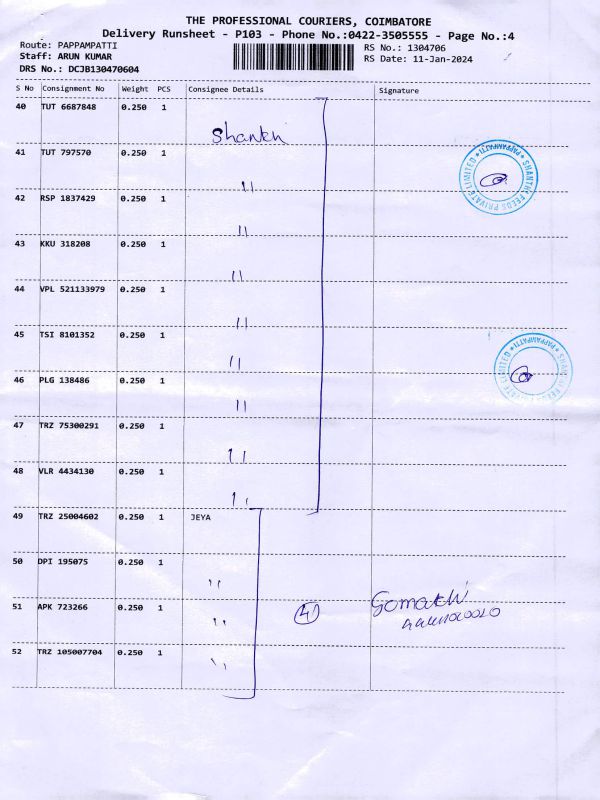 THE PROFESSIONAL COURIERS, COIMBATORE
Delivery Runsheet - P103 - Phone No.:0422-3505555 - Page No.:4
Route: PAPPAMPATTI RS No.: 1304706
Staff: ARUN KUMAR RS Date: 11-Jan-2024
DRS No.: DCJB130470604
S No Consignment No Weight PCS Consignee Details Signature
40 TUT 6687848 0.250 1
Shanthi
41 TUT 797570 0.250 1
SHANTHI FEEDS PRIVATE LIMITED * PAPPAMPATTI *
"
42 RSP 1837429 0.250 1
"
43 KKU 318208 0.250 1
"
44 VPL 521133979 0.250 1
"
45 TSI 8101352 0.250 1
SHANTHI FEEDS PRIVATE LIMITED * PAPPAMPATTI *
"
46 PLG 138486 0.250 1
"
47 TRZ 75300291 0.250 1
"
48 VLR 4434130 0.250 1
"
49 TRZ 25004602 0.250 1 JEYA
50 DPI 195075 0.250 1
"
51 APK 723266 0.250 1 4 Gomathi
"
52 TRZ 105007704 0.250 1
"